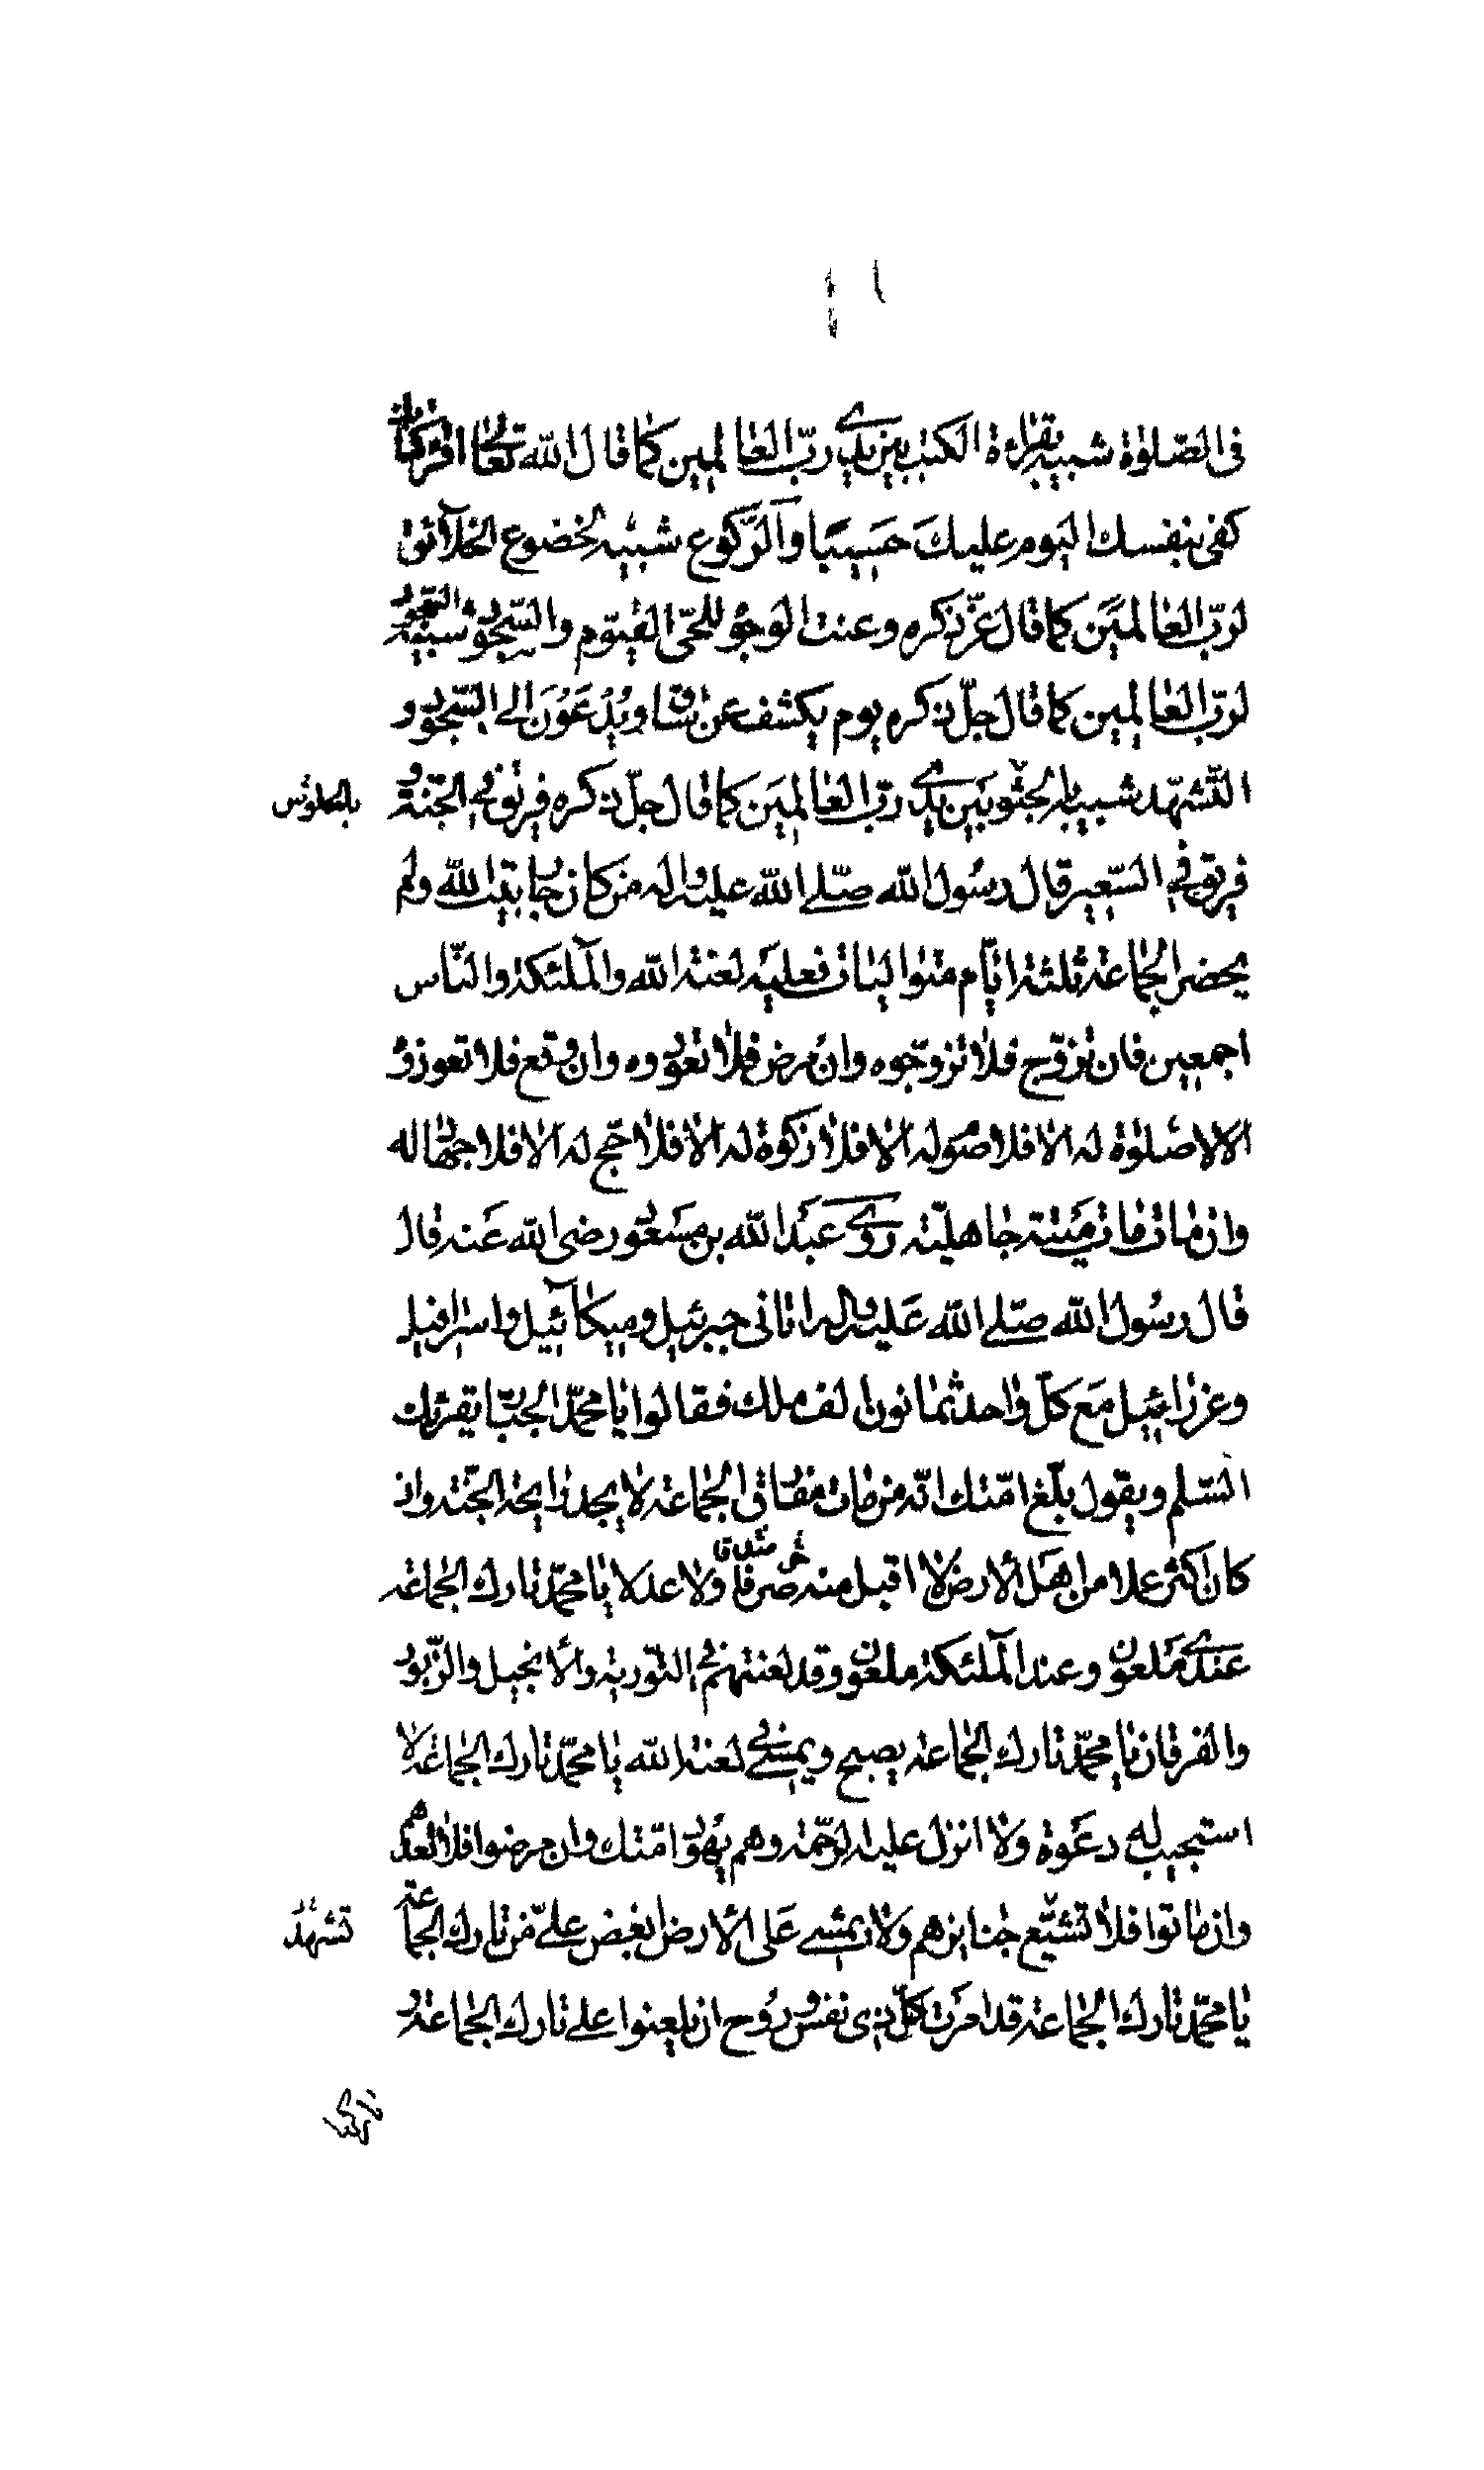 فی الصّلوٰة شبیه بقراءة الکتب بین یدی ربّ العالمین کما قال الله تعالی اقرء کتابک
کفی بنفسک الیوم علیک حسیبا وآلرّکوع شبیه لخضوع الخلآئق
لربّ العالمین کما قال عزّ ذکره وعنت الوجوه للحیّ القیّوم والسّجود شبیه السّجود
لربّ العالمین کما قال جلّ ذکره یوم یکشف عن ساق ویُدعَون الی السّجود و
التّشهّد شبیه بالجثو بین یدی ربّ العالمین کما قال جلّ ذکره فریق فی الجنّة و
بالجلوس
فریق فی السّعیر قال رسُول الله صلّی الله علیه واله من کان جار بیت الله ولم
یحضر الجماعة ثلثة ایّام متوالیات فعلیه لعنة الله والملئکة والنّاس
اجمعین فان تزوّج فلا تزوّجوه وان مرض فلا تعودوه وان وقع فلا تعوزوه
الا لا صلوٰة له الا فلا صوم له الا فلا زکوة له الا فلا حجّ له الا فلا جهاد له
وان مات مات میتة جاهلیّة روی عبد الله بن مسعود رضی الله عنه قال
قال رسُول الله صلّی الله علیه واله اتانی جبرئیل ومیکآئیل واسرافیل
وعزرائیل مع کلّ واحد ثمانون الف ملک فقالوا یا محمّد الجبّار یقرئک
السّلم ویقول بلّغ امّتک انّه من مات مفارق الجماعة لا یجد رایحة الجنّة وان
کان اکثر عملا من اهل الارض لا اقبل منه صرفا ولا عدلا یا محمّد تارک الجماعة
عندی ملعون وعند الملئکة ملعون وقد لعنتهم فی التّوریة والانجیل والزّبور
والفرقان یا محمّد تارک الجماعة یصبح ویمسی فی لعنة الله یا محمّد تارک الجماعة لا
استجیب له دعوة ولا انزل علیه الرّحمة وهم یهود امّتک وان مرضوا فلا تعدهم
وان ماتوا فلا تشیّع جنایزهم ولا یمشی علی الارض ابغض علیّ من تارک الجماعة
تشهد
یا محمّد تارک الجماعة قد امرت کلّ ذی نفس وروح ان یلعنوا علی تارک الجماعة و